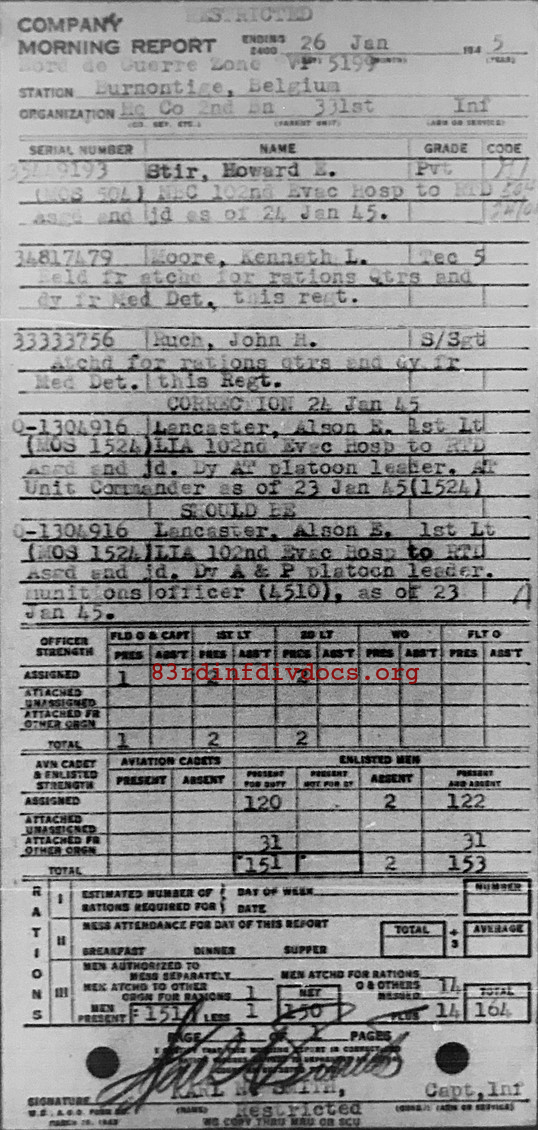 RESTRICTED
COMPANY
MORNING REPORT ENDING 2400 26 Jan 194 5
Nord de Guerre Zone VP 5199 (MONTH) (YEAR)
STATION Burnontige, Belgium
ORGANIZATION Hq Co 2nd Bn 331st Inf
(CO. DET. ETC.) (PARENT UNIT) (ARM OR SERVICE)
SERIAL NUMBER NAME GRADE CODE
35449193 Stir, Howard E. Pvt
(MOS 504) NBC 102nd Evac Hosp to RTD
Asgd and jd as of 24 Jan 45.
34817479 Moore, Kenneth L. Tec 5
Reld fr atchd for rations Qtrs and
dy fr Med Det. this regt.
33333756 Ruch, John H. S/Sgt
Atchd for rations qtrs and dy fr
Med Det. this Regt.
CORRECTION 24 Jan 45
O-1304916 Lancaster, Alson E. 1st Lt
(MOS 1524) LIA 102nd Evac Hosp to RTD
Asgd and jd. Dy AT platoon leader. AT
Unit Commander as of 23 Jan 45(1524)
SHOULD BE
O-1304916 Lancaster, Alson E. 1st Lt
(MOS 1524) LIA 102nd Evac Hosp to RTD
Asgd and jd. Dy A & P platoon leader.
munitions officer (4510), as of 23
Jan 45.
OFFICER STRENGTH FLD O & CAPT 1ST LT 2D LT WO FLT O
PRES ABS'T PRES ABS'T PRES ABS'T PRES ABS'T PRES ABS'T
ASSIGNED 1 2 2
83rdinfdivdocs.org
ATTACHED UNASSIGNED
ATTACHED FR OTHER ORGN
TOTAL 1 2 2
AVN CADET & ENLISTED STRENGTH AVIATION CADETS ENLISTED MEN
PRESENT ABSENT PRESENT FOR DUTY PRESENT NOT FOR DY ABSENT PRESENT AND ABSENT
ASSIGNED 120 2 122
ATTACHED UNASSIGNED
ATTACHED FR OTHER ORGN 31 31
TOTAL 151 2 153
RATIONS
I ESTIMATED NUMBER OF RATIONS REQUIRED FOR DAY OF WEEK DATE NUMBER
II MESS ATTENDANCE FOR DAY OF THIS REPORT TOTAL ÷ 3 AVERAGE
BREAKFAST DINNER SUPPER
III MEN AUTHORIZED TO MESS SEPARATELY MEN ATCHD FOR RATIONS
MEN ATCHD TO OTHER ORGN FOR RATIONS 1 NET O & OTHERS MESSED 14 TOTAL
MEN PRESENT 151 LESS 1 150 PLUS 14 164
PAGE 1 OF 1 PAGES
KARL SMITH, Capt, Inf
SIGNATURE (NAME) (GRADE) (ARM OR SERVICE)
Restricted
W.D., A.G.O. FORM